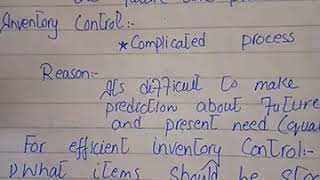 Inventory Control:-
*Complicated process
Reason:-
Its difficult to make
prediction about future
and present need
For efficient inventory Control:-
1) What items should be